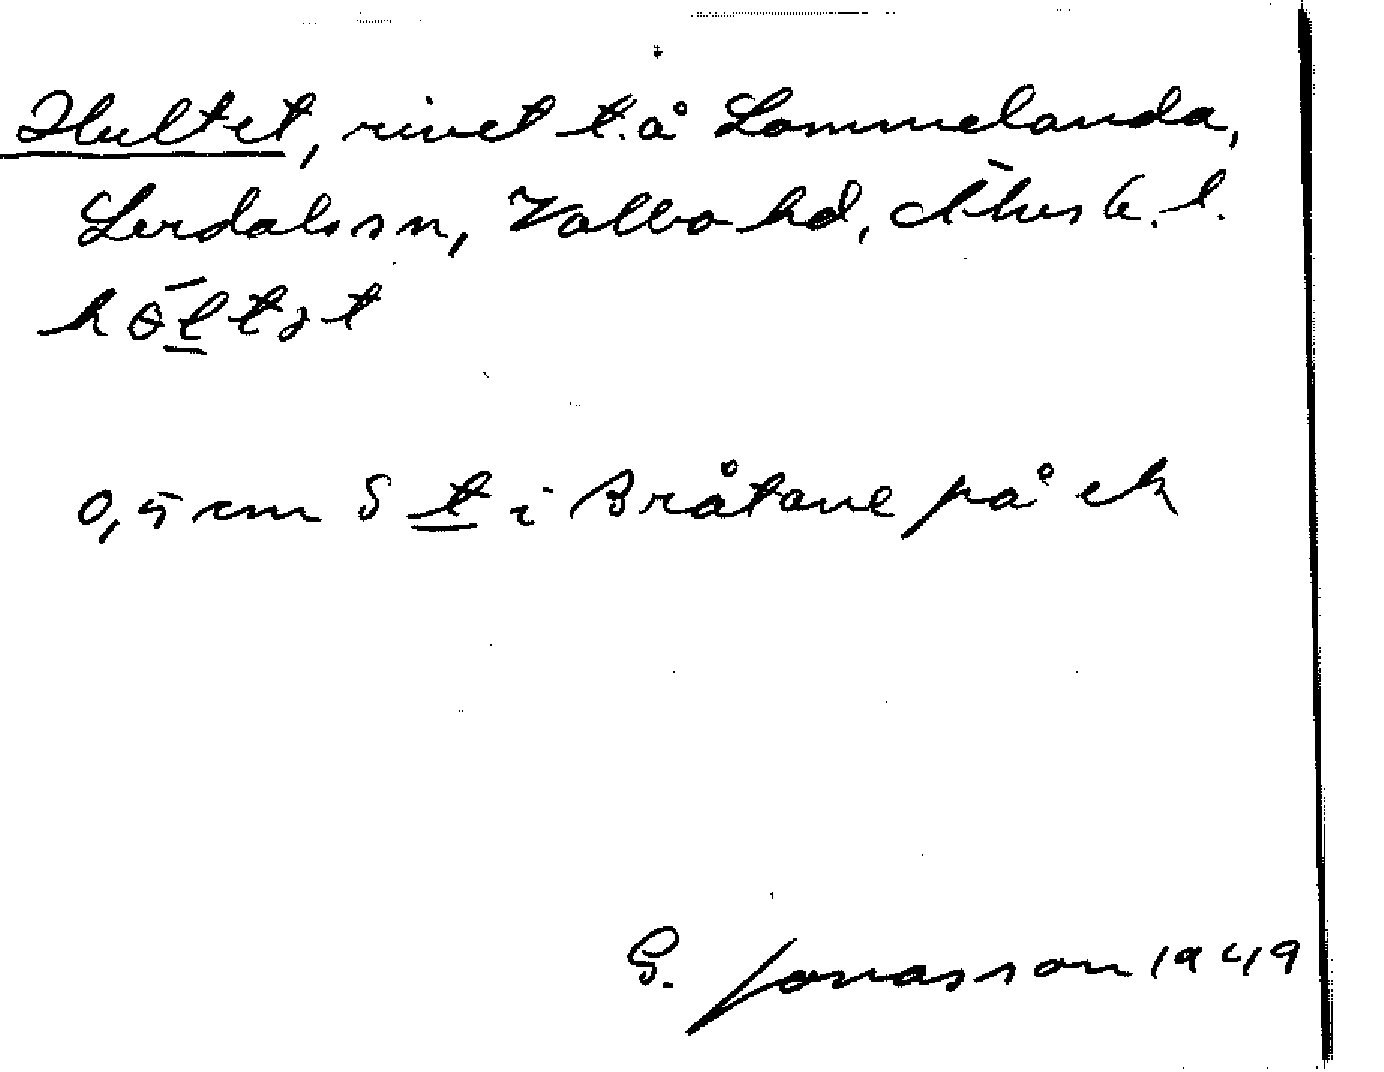 Hultet, rivet t.å Lommelanda,
Lerdals sn, Valbo hd, Älvsb. l.
hɵ̄ltət
0,5 cm S t i Bråtane på ek
G. Jonasson 1949